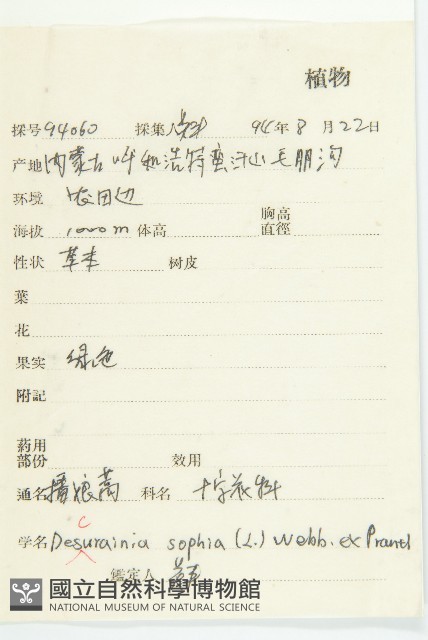 植物
採号 94060 採集人 94年 8月 22日
产地 内蒙古呼和浩特蛮汗山毛朋沟
环境 农田边
海拔 1000m 体高 胸高直徑
性状 草本 树皮
葉
花
果实 绿色
附記
葯用部份 效用
通名 播娘蒿 科名 十字花科
c
学名 Desurainia sophia (L.) Webb. ex Prantl
鑑定人
國立自然科學博物館
NATIONAL MUSEUM OF NATURAL SCIENCE